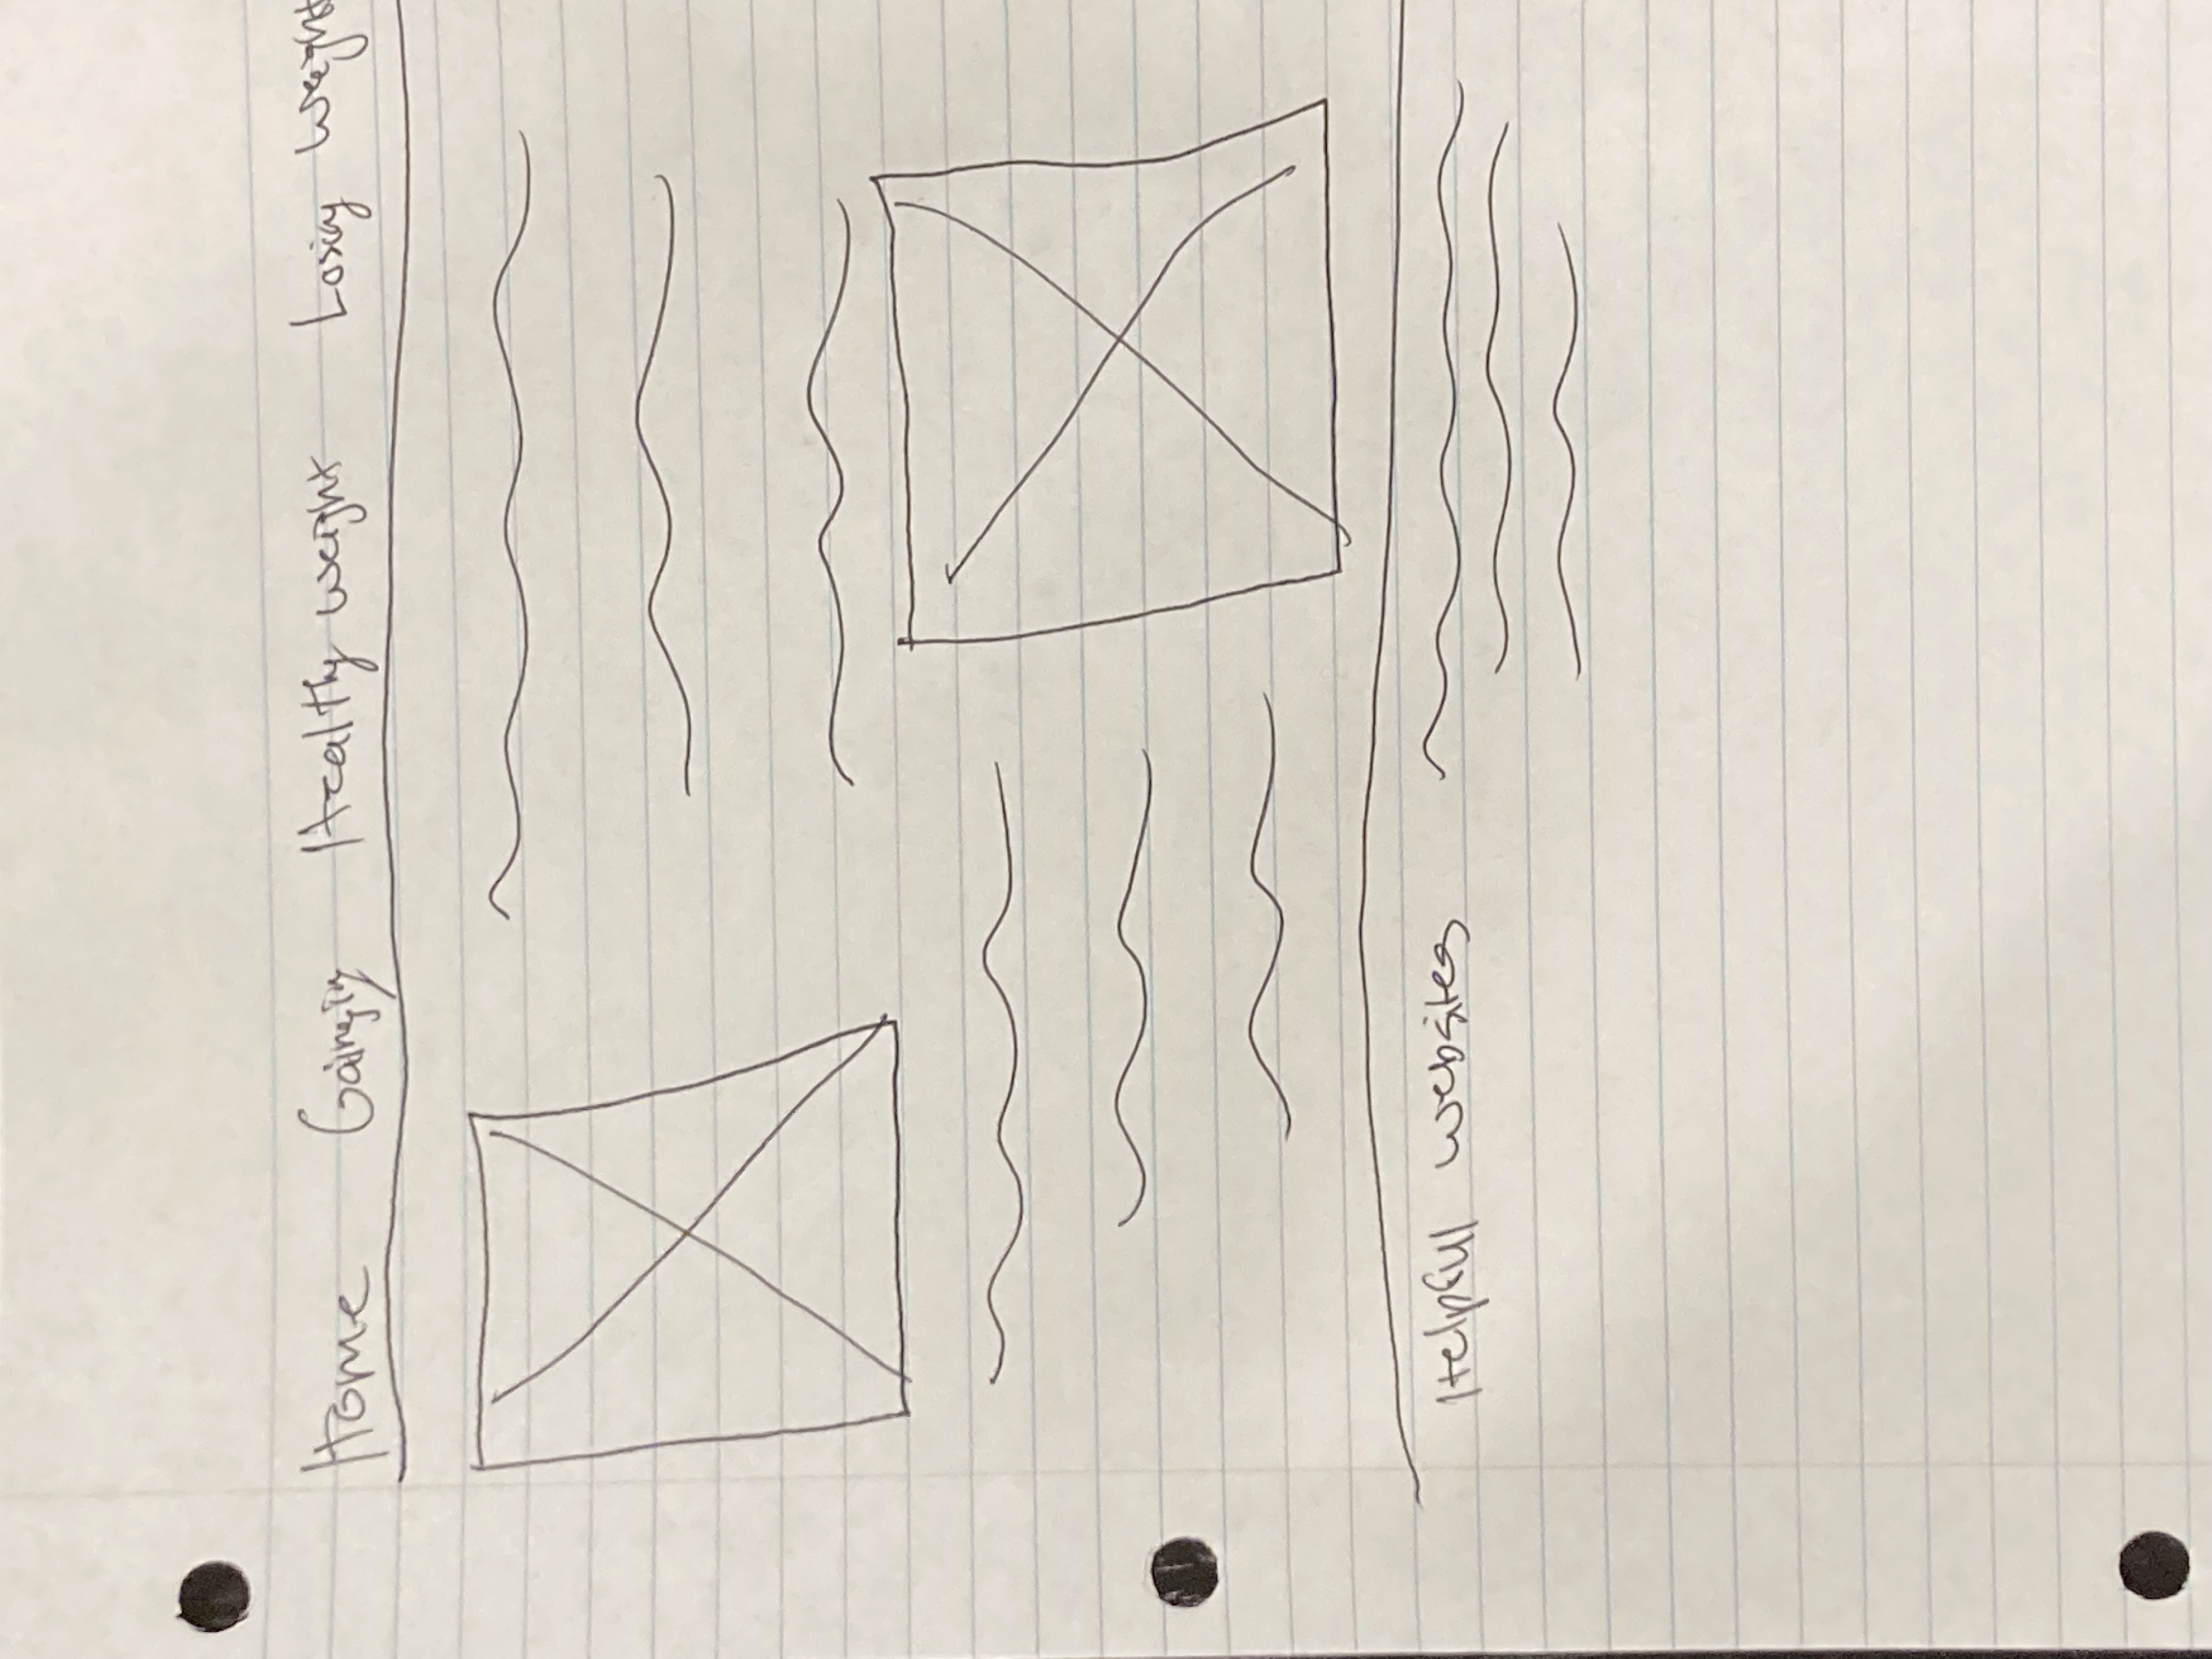 Home Gainging Healthy weight Losing Weight
Helpful websites